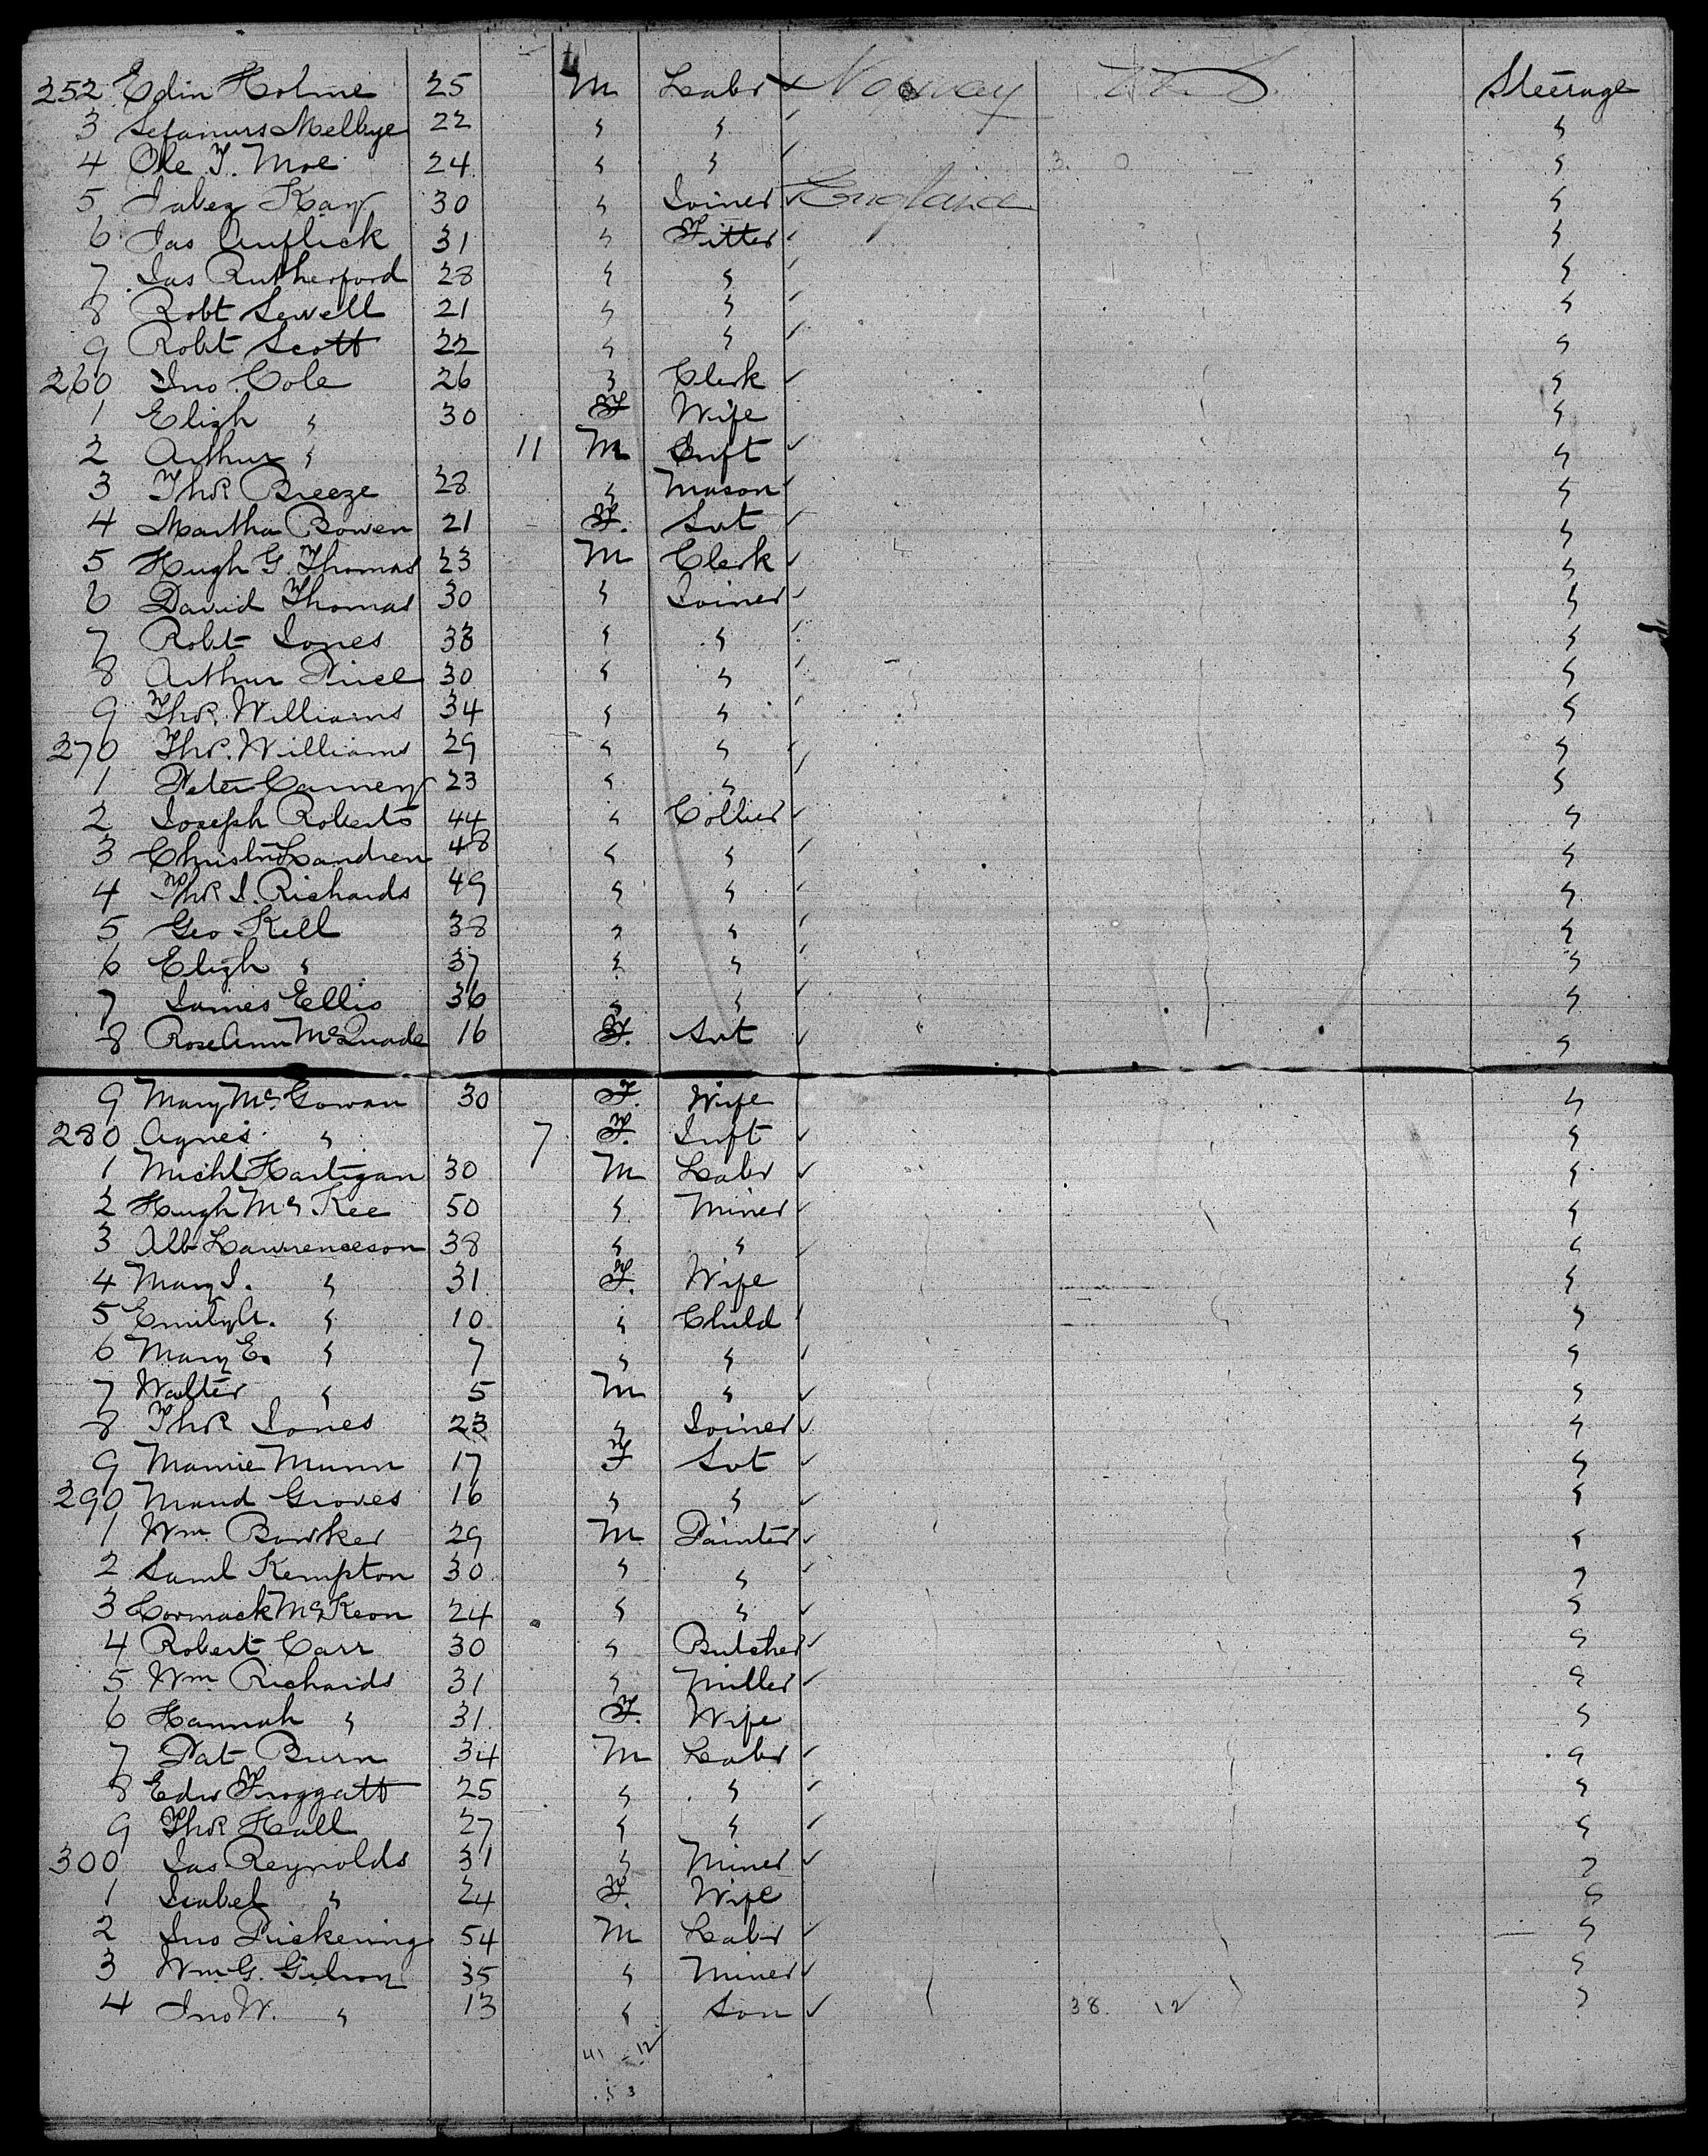 252 Edin Holme 25 M Labr Norway U.S. Steerage
3 Sefanius Melbye 22 " " "
4 Ole T. Moe 24 " " 3. 0 "
5 Jabez Kay 30 " Joiner England "
6 Jas 31 " Fitter "
7 Jas Rutherford 28 " " "
8 Robt Sewell 21 " " "
9 Robt Scott 22 " " "
260 Jno Cole 26 " Clerk "
1 Elizh " 30 F Wife "
2 Arthur " 11 M Inft "
3 Thos Breeze 28 " Mason "
4 Martha Bowen 21 F. Svt "
5 Hugh G. Thomas 23 M Clerk "
6 David Thomas 30 " Joiner "
7 Robt Jones 38 " " "
8 Arthur Price 30 " " "
9 Thos. Williams 34 " " "
270 Thos. Williams 29 " " "
1 Peter Carney 23 " " "
2 Joseph Roberts 44 " Collier "
3 Christn Landren 48 " " "
4 Thos J. Richards 49 " " "
5 Geo Kell 38 " " "
6 Elizh " 37 " " "
7 James Ellis 36 " " "
8 RoseAnn McQuade 16 F. Svt "
9 Mary Mc.Gowan 30 F. Wife "
280 Agnes " 7 F. Inft "
1 Michl Hartigan 30 M Labr "
2 Hugh McKee 50 " Miner "
3 Alb Lawrenceson 38 " " "
4 Mary J. " 31 F. Wife "
5 Emily A. " 10 " Child "
6 Mary E. " 7 " " "
7 Walter " 5 M " "
8 Thos Jones 23 " Joiner "
9 Mamie Munn 17 F Svt "
290 Maud Groves 16 " " "
1 Wm Bowker 29 M Painter "
2 Saml Kempton 30 " " "
3 Cormack McKeon 24 " " "
4 Robert Carr 30 " Butcher "
5 Wm Richards 31 " Miller "
6 Hannah " 31 F. Wife "
7 Pat Burn 34 M Labr "
8 Edw Froggatt 25 " " "
9 Thos Hall 27 " " "
300 Jas Reynolds 31 " Miner "
1 Isabel " 24 F. Wife "
2 Jno Pickering 54 M Labr "
3 Wm G. Gilroy 35 " Miner "
4 Jno W. " 13 " Son 38 12 "
41 12
53